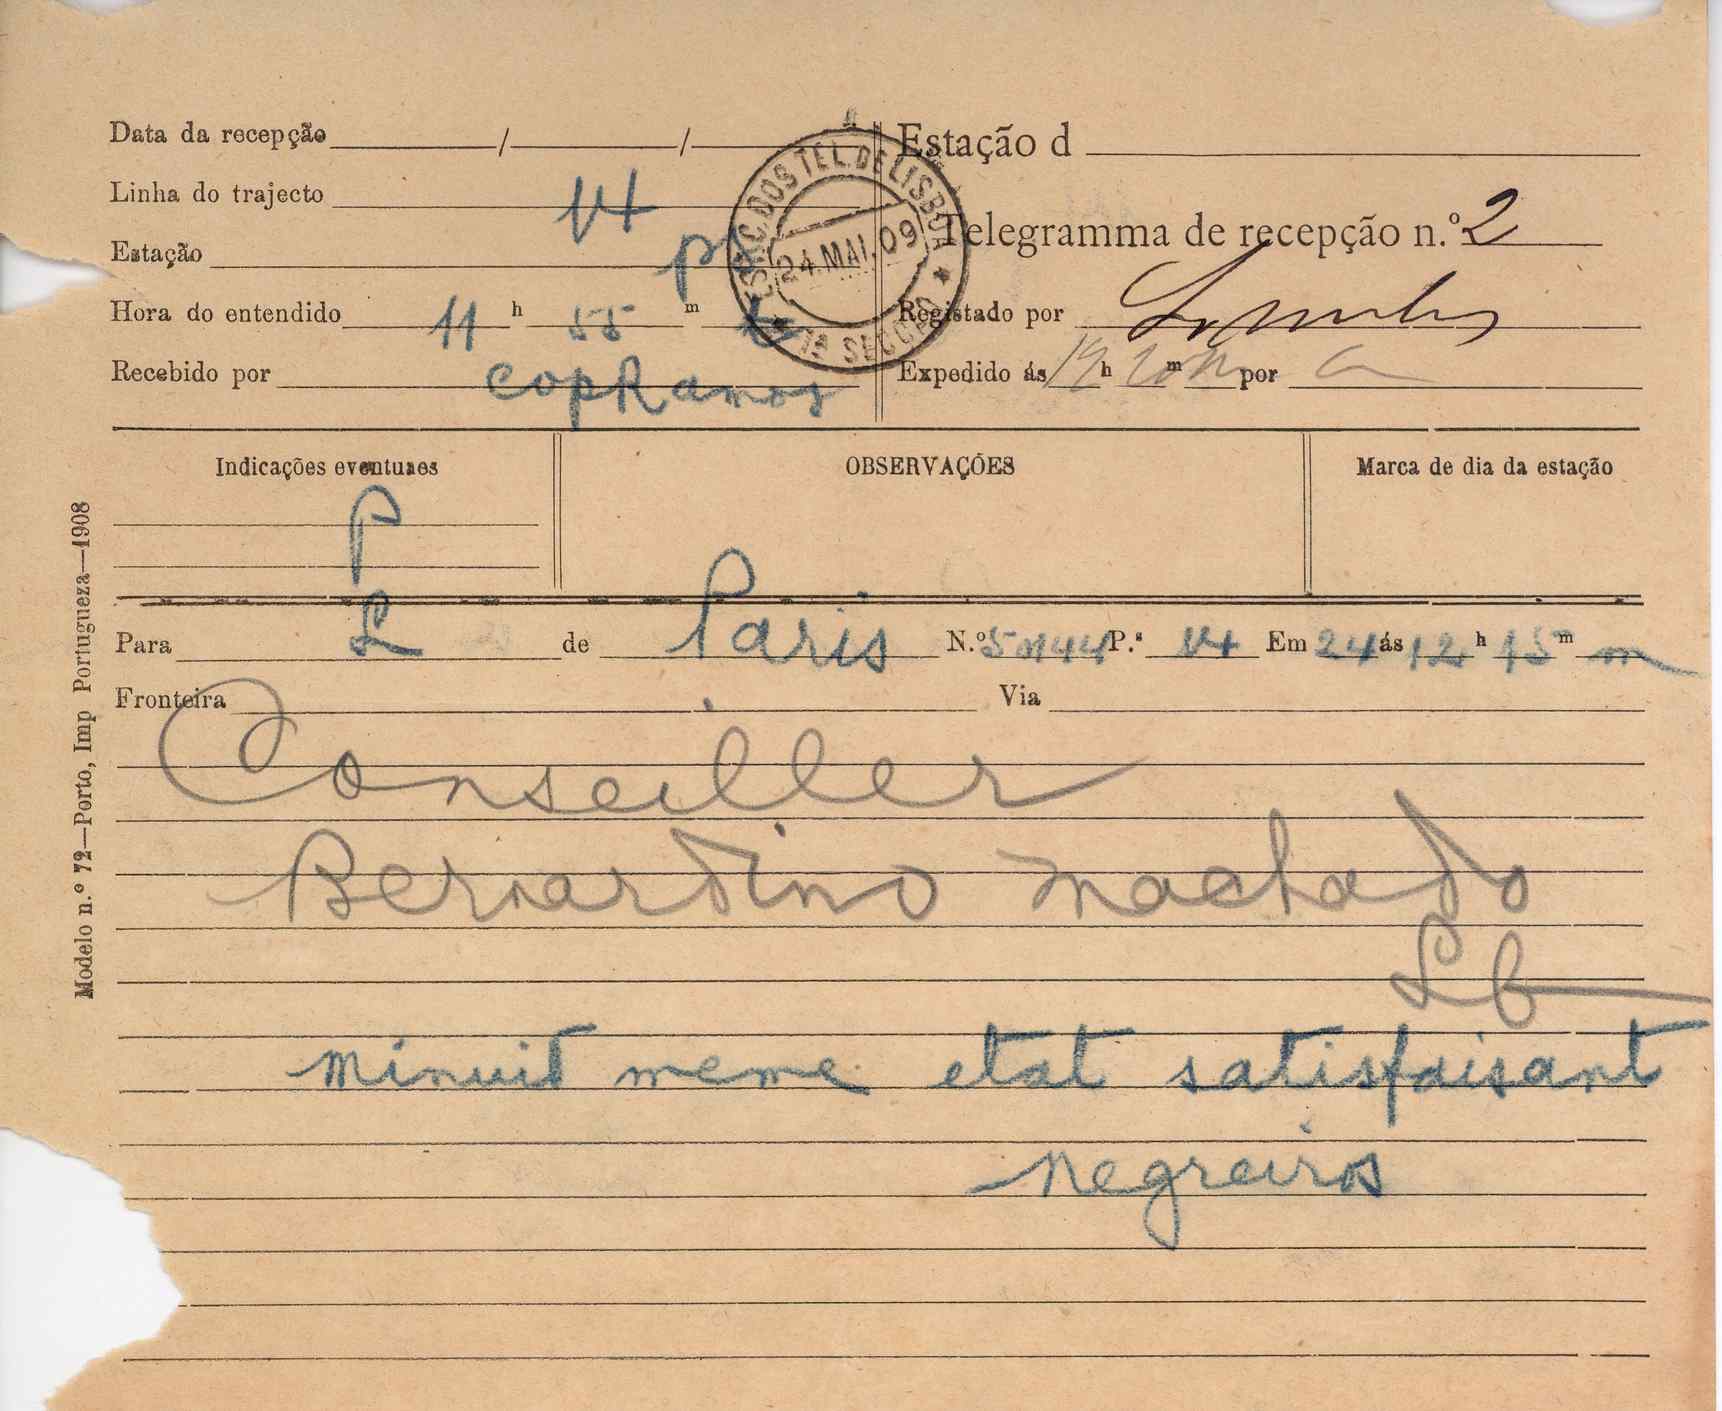 Data da recepção / /
Linha do trajecto 14
Estação p
Hora do entendido 11 h 55 m t
Recebido por copRamos
ESTAÇ. DOS TEL. DE LISBOA
24.MAI.09
1ª SECÇÃO
Estação d
Telegramma de recepção n.º 2
Registado por
Expedido ás h m por
Indicações eventuaes
P
OBSERVAÇÕES
Marca de dia da estação
Para L de Paris N.º P.ˢ 14 Em 24 ás 12 h 15 m m
Fronteira Via
Conseiller
Bernardino Machado
Lb
minuit meme etat satisfaisant
negreiros
Modelo n.º 72—Porto, Imp Portugueza—1908